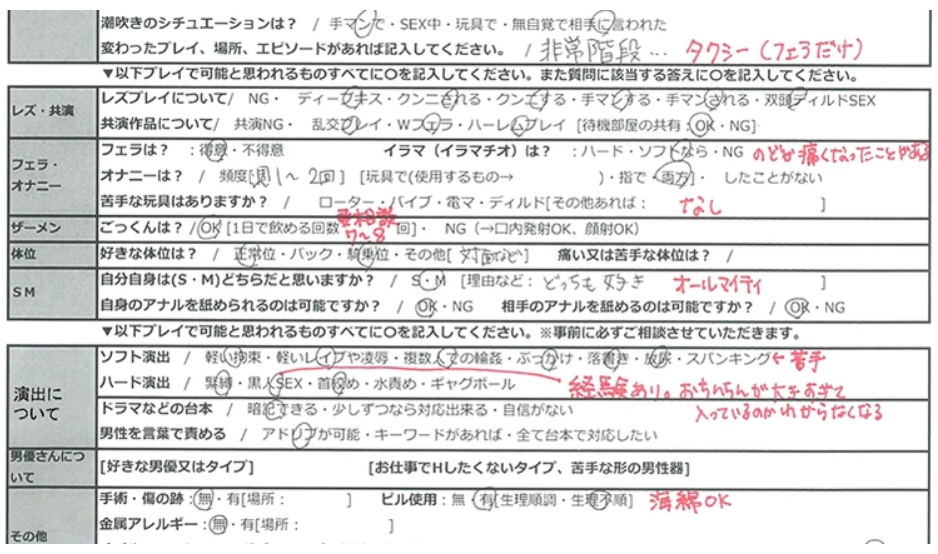 潮吹きのシチュエーションは？ / 手マンで・SEX中・玩具で・無自覚で相手に言われた
変わったプレイ、場所、エピソードがあれば記入してください。 / 非常階段… タクシー（フェラだけ）
▼以下プレイで可能と思われるものすべてに○を記入してください。また質問に該当する答えに○を記入してください。
レズ・共演
レズプレイについて/ NG・ ディープキス・クンニされる・クンニする・手マンする・手マンされる・双頭ディルドSEX
共演作品について/ 共演NG・ 乱交プレイ・Wフェラ・ハーレムプレイ [待機部屋の共有：OK・NG]
フェラ・オナニー
フェラは？ ：得意・不得意 イラマ（イラマチオ）は？ ：ハード・ソフトなら・NG のどが痛くなったことがある
オナニーは？ / 頻度[週1～2回] [玩具で(使用するもの→ )・指で・両方]・ したことがない
苦手な玩具はありますか？ / ローター・バイブ・電マ・ディルド[その他あれば： なし ]
ザーメン
ごっくんは？ /OK [1日で飲める回数 要相談 7～8 回]・ NG (→口内発射OK、顔射OK)
体位
好きな体位は？ / 正常位・バック・騎乗位・その他[ 対面など ] 痛い又は苦手な体位は？ /
SM
自分自身は(S・M)どちらだと思いますか？ / S・M [理由など：どっちも好き オールマイティ ]
自身のアナルを舐められるのは可能ですか？ / OK・NG 相手のアナルを舐めるのは可能ですか？ / OK・NG
▼以下プレイで可能と思われるものすべてに○を記入してください。※事前に必ずご相談させていただきます。
演出について
ソフト演出 / 軽い拘束・軽いレイプや凌辱・複数人での輪姦・ぶっかけ・落書き・放尿・スパンキング←苦手
ハード演出 / 緊縛・黒人SEX・首絞め・水責め・ギャグボール 経験あり。おちんちんが大きすぎて
入っているのかわからなくなる
ドラマなどの台本 / 暗記できる・少しずつなら対応出来る・自信がない
男性を言葉で責める / アドリブが可能・キーワードがあれば・全て台本で対応したい
男優さんについて
[好きな男優又はタイプ] [お仕事でHしたくないタイプ、苦手な形の男性器]
その他
手術・傷の跡：無・有[場所： ] ピル使用：無・有[生理順調・生理不順] 海綿OK
金属アレルギー：無・有[場所： ]